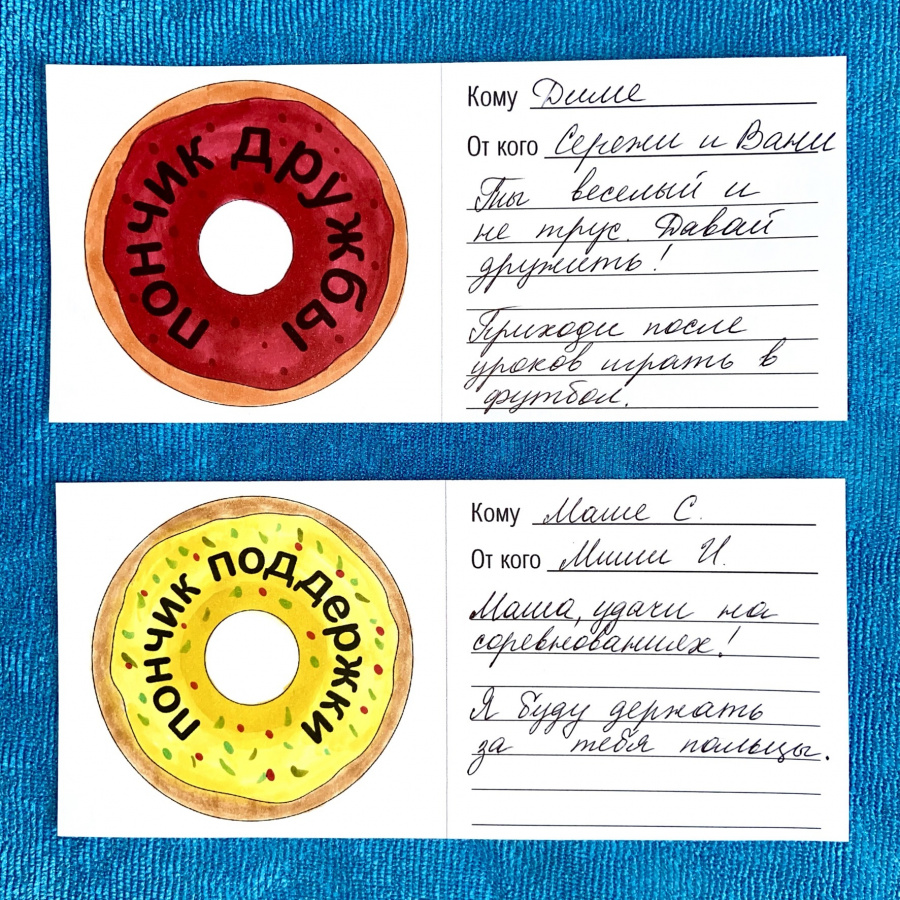 пончик дружбы
Кому Диме
От кого Сережи и Вани
Ты веселый и
не трус. Давай
дружить!
Приходи после
уроков играть в
футбол.
пончик поддержки
Кому Маше С.
От кого Миши И.
Маша, удачи на
соревнованиях!
Я буду держать
за тебя пальцы.